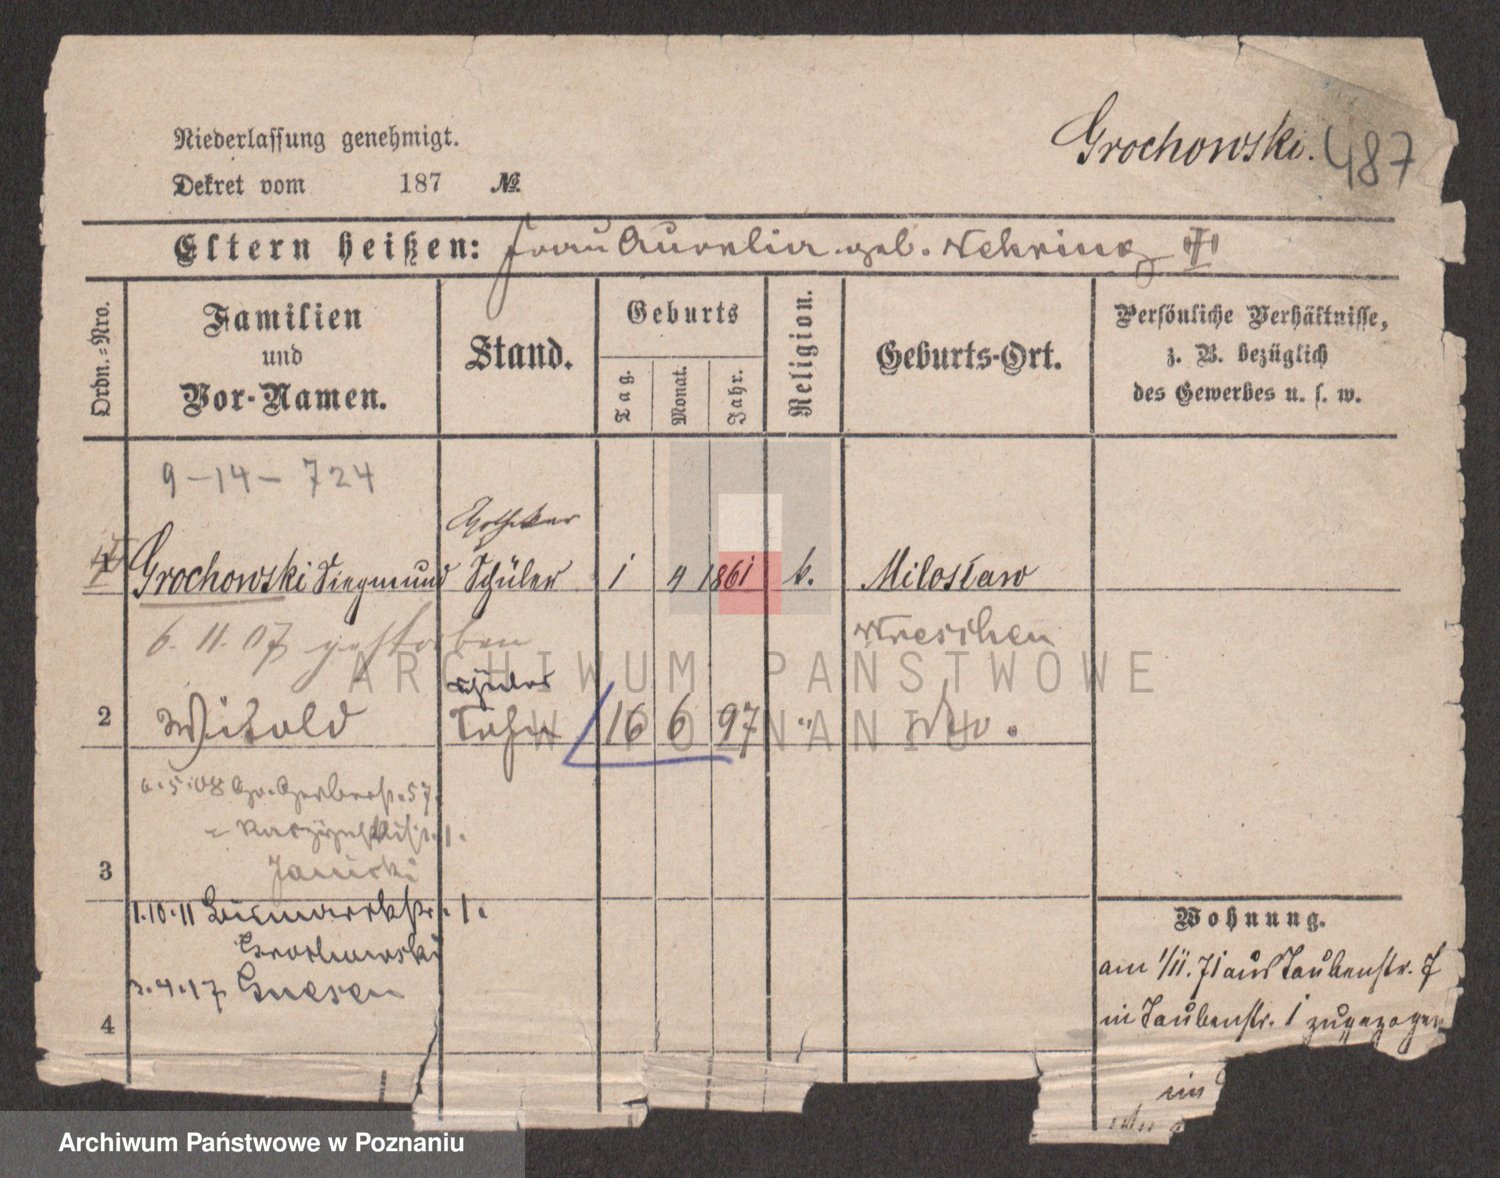 Niederlassung genehmigt.
Dekret vom 187 №
Grochowski. 487
Eltern heißen: Frau Aurelia geb. Nehring
Ordn.=Nro.
Familien
und
Vor-Namen.
Stand.
Geburts
Tag.
Monat.
Jahr.
Religion.
Geburts-Ort.
Persönliche Verhältnisse,
z. B. bezüglich
des Gewerbes u. s. w.
9-14-724
Apotheker
Grochowski Siegmund Schüler 1 4 1861 k. Miloslaw
6.11.07 gestorben
Wreschen
Schüler
2 Witold Sohn 16 6 97 "
6.5.08 Gr. Gerberstr. 57.
Janicki
3
1.10.11 Bismarckstr. 1.
Grochowski
3.4.17 Gnesen
4
Wohnung.
am 1/11.71 aus Taubenstr. 7
in Taubenstr. 1 zugezogen
in
ARCHIWUM PAŃSTWOWE
W POZNANIU
Archiwum Państwowe w Poznaniu